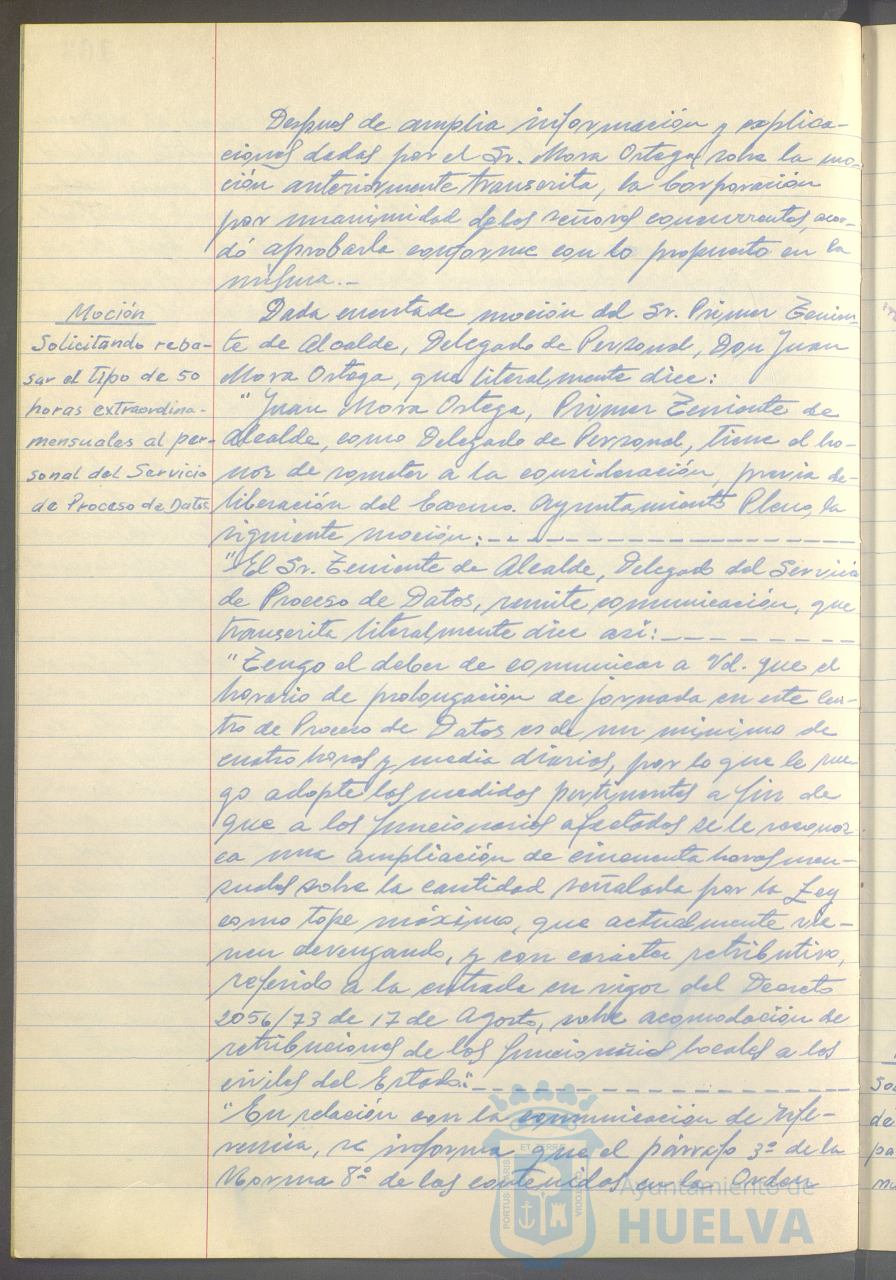 Despues de amplia información y explica-
ciones dadas por el Sr. Mora Ortega, sobre la mo-
ción anteriormente transcrita, la Corporación
por unanimidad de los señores concurrentes, acor-
dó aprobarla conforme con lo propuesto en la
misma.-
Moción
Solicitando reba-
sar el tipo de 50
horas extraordina-
mensuales al per-
sonal del Servicio
de Proceso de Datos
Dada cuenta de moción del Sr. Primer Tenien-
te de Alcalde, Delegado de Personal, Don Juan
Mora Ortega, que literalmente dice:
"Juan Mora Ortega, Primer Teniente de
Alcalde, como Delegado de Personal, tiene el ho-
nor de someter a la consideración, previa de-
liberación del Excmo. Ayuntamiento Pleno, la
siguiente moción:
"El Sr. Teniente de Alcalde, Delegado del Servicio
de Proceso de Datos, remite comunicación, que
transcrita literalmente dice asi:
"Tengo el deber de comunicar a Vd. que el
horario de prolongación de jornada en este Cen-
tro de Proceso de Datos es de un minimo de
cuatro horas y media diarias, por lo que le rue-
go adopte las medidas pertinentes a fin de
que a los funcionarios afectados se le reconoz-
ca una ampliación de cincuenta horas men-
suales sobre la cantidad señalada por la Ley
como tope máximo, que actualmente vie-
nen devengando, y con carácter retributivo,
referido a la entrada en vigor del Decreto
2056/73 de 17 de Agosto, sobre acomodación de
retribuciones de los funcionarios locales a los
civiles del Estado."
"En relación con la comunicación de refe-
rencia, se informa que el párrafo 3º de la
Norma 8ª de las contenidas en la Orden
PORTUS MARIS
ET TERRE
CUSTODIA
Ayuntamiento de
HUELVA